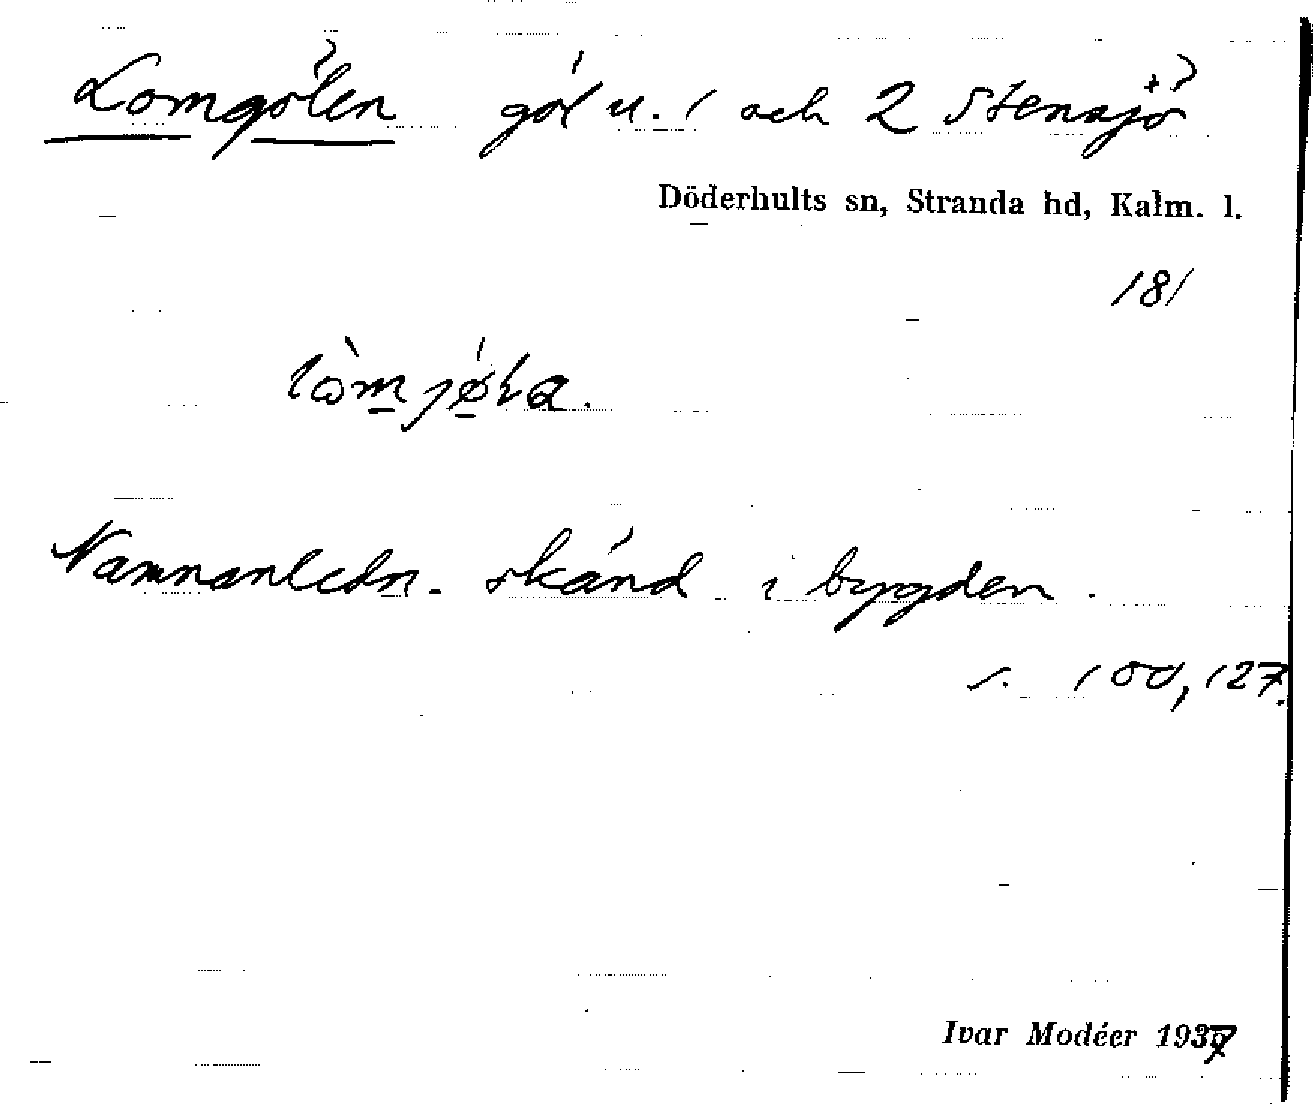 Lomgölen göl u. 1 och 2 Stensjö
Döderhults sn, Stranda hd, Kalm. l.
181
Namnanledn. okänd i bygden.
s. 100, 127.
Ivar Modéer 1937